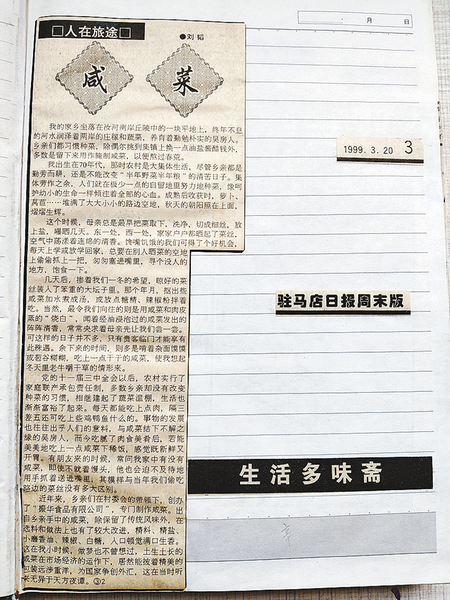 □人在旅途□
●刘韬
咸
菜
我的家乡坐落在汝河南岸丘陵中的一块平地上，终年不息
的河水润泽着两岸的庄稼和蔬菜，养育着勤勉朴实的吴房人。
乡亲们都习惯种菜，除偶尔挑到集镇上换一点油盐酱醋钱外，
多数是留下来用作腌制咸菜，以便熬过春荒。
我出生在70年代，那时农村是大集体生活，尽管乡亲都是
勤劳而耕，还是不能改变“半年野菜半年粮”的清苦日子。集
体劳作之余，人们就在极少一点的自留地里努力地种菜，像呵
护幼小的生命一样倾注着全部的心血。成熟后收获时，萝卜、
莴苣……堆满了大大小小的路边空地，秋天的朝阳照在上面，
熠熠生辉。
这个时候，母亲总是最早把菜取下，洗净，切成细丝，放
上盐，曝晒几天。东一处，西一处，家家户户都晒起了菜丝，
空气中荡漾着连绵的清香。馋嘴饥饿的我们可得了个好机会，
每天上学或放学回家，总要在别人晒菜的空地
上偷偷抓上一把，匆匆塞进嘴里，寻个没人的
地方，饱食一下。
几天后，揣着我们一冬的希望，晾好的菜
丝装入了笨重的大坛子里。那个年月，抠出些
咸菜加水煮成汤，或放点糖精、辣椒粉拌着
吃。当然，最令我们向往的则是用咸菜和肉皮
蒸的“烧白”，闻着经油浸泡过的咸菜发出的
阵阵清香，常常央求着母亲先让我们尝一尝。
可这样的日子并不多，只有贵客临门才能享有
此殊遇。余下来的时间，则多是啃着杂面馍馍
或苞谷糊糊，吃上一点干干的咸菜，使我想起
冬天里老牛嚼干草的情形来。
党的十一届三中全会以后，农村实行了
家庭联产承包责任制，多数乡亲却没有改变
种菜的习惯，相继建起了蔬菜温棚，生活也
渐渐富裕了起来，每天都能吃上点肉，隔三
差五还可吃上些鸡鸭鱼什么的。事物的发展
也往往出乎人们的意料，与咸菜结下不解之
缘的吴房人，而今吃腻了肉食美肴后，若能
美美地吃上一点咸菜下稀饭，感觉既新鲜又
开胃。有朋友来的时候，常问我家中有没有
咸菜，即使不就着馒头，他也会迫不及待地
用手抓着送进嘴里，其模样与当年我们偷吃
路边的菜丝没有多大区别。
近年来，乡亲们在村委会的带领下，创办
了“豪华食品有限公司”，专门制作咸菜。出
自乡亲手中的咸菜，除保留了传统风味外，在
选料和做法上也有了较大改进，精料、精盐、
小磨香油、辣椒、白糖，入口顿觉满口生香。
这在我小时候，做梦也不曾想过，土生土长的
咸菜在市场经济的运作下，居然能披着精美的
包装远涉重洋，为国家争创外汇，这在当时听
来无异于天方夜谭。③2
月 日
1999.3.20 3
驻马店日报周末版
生活多味斋